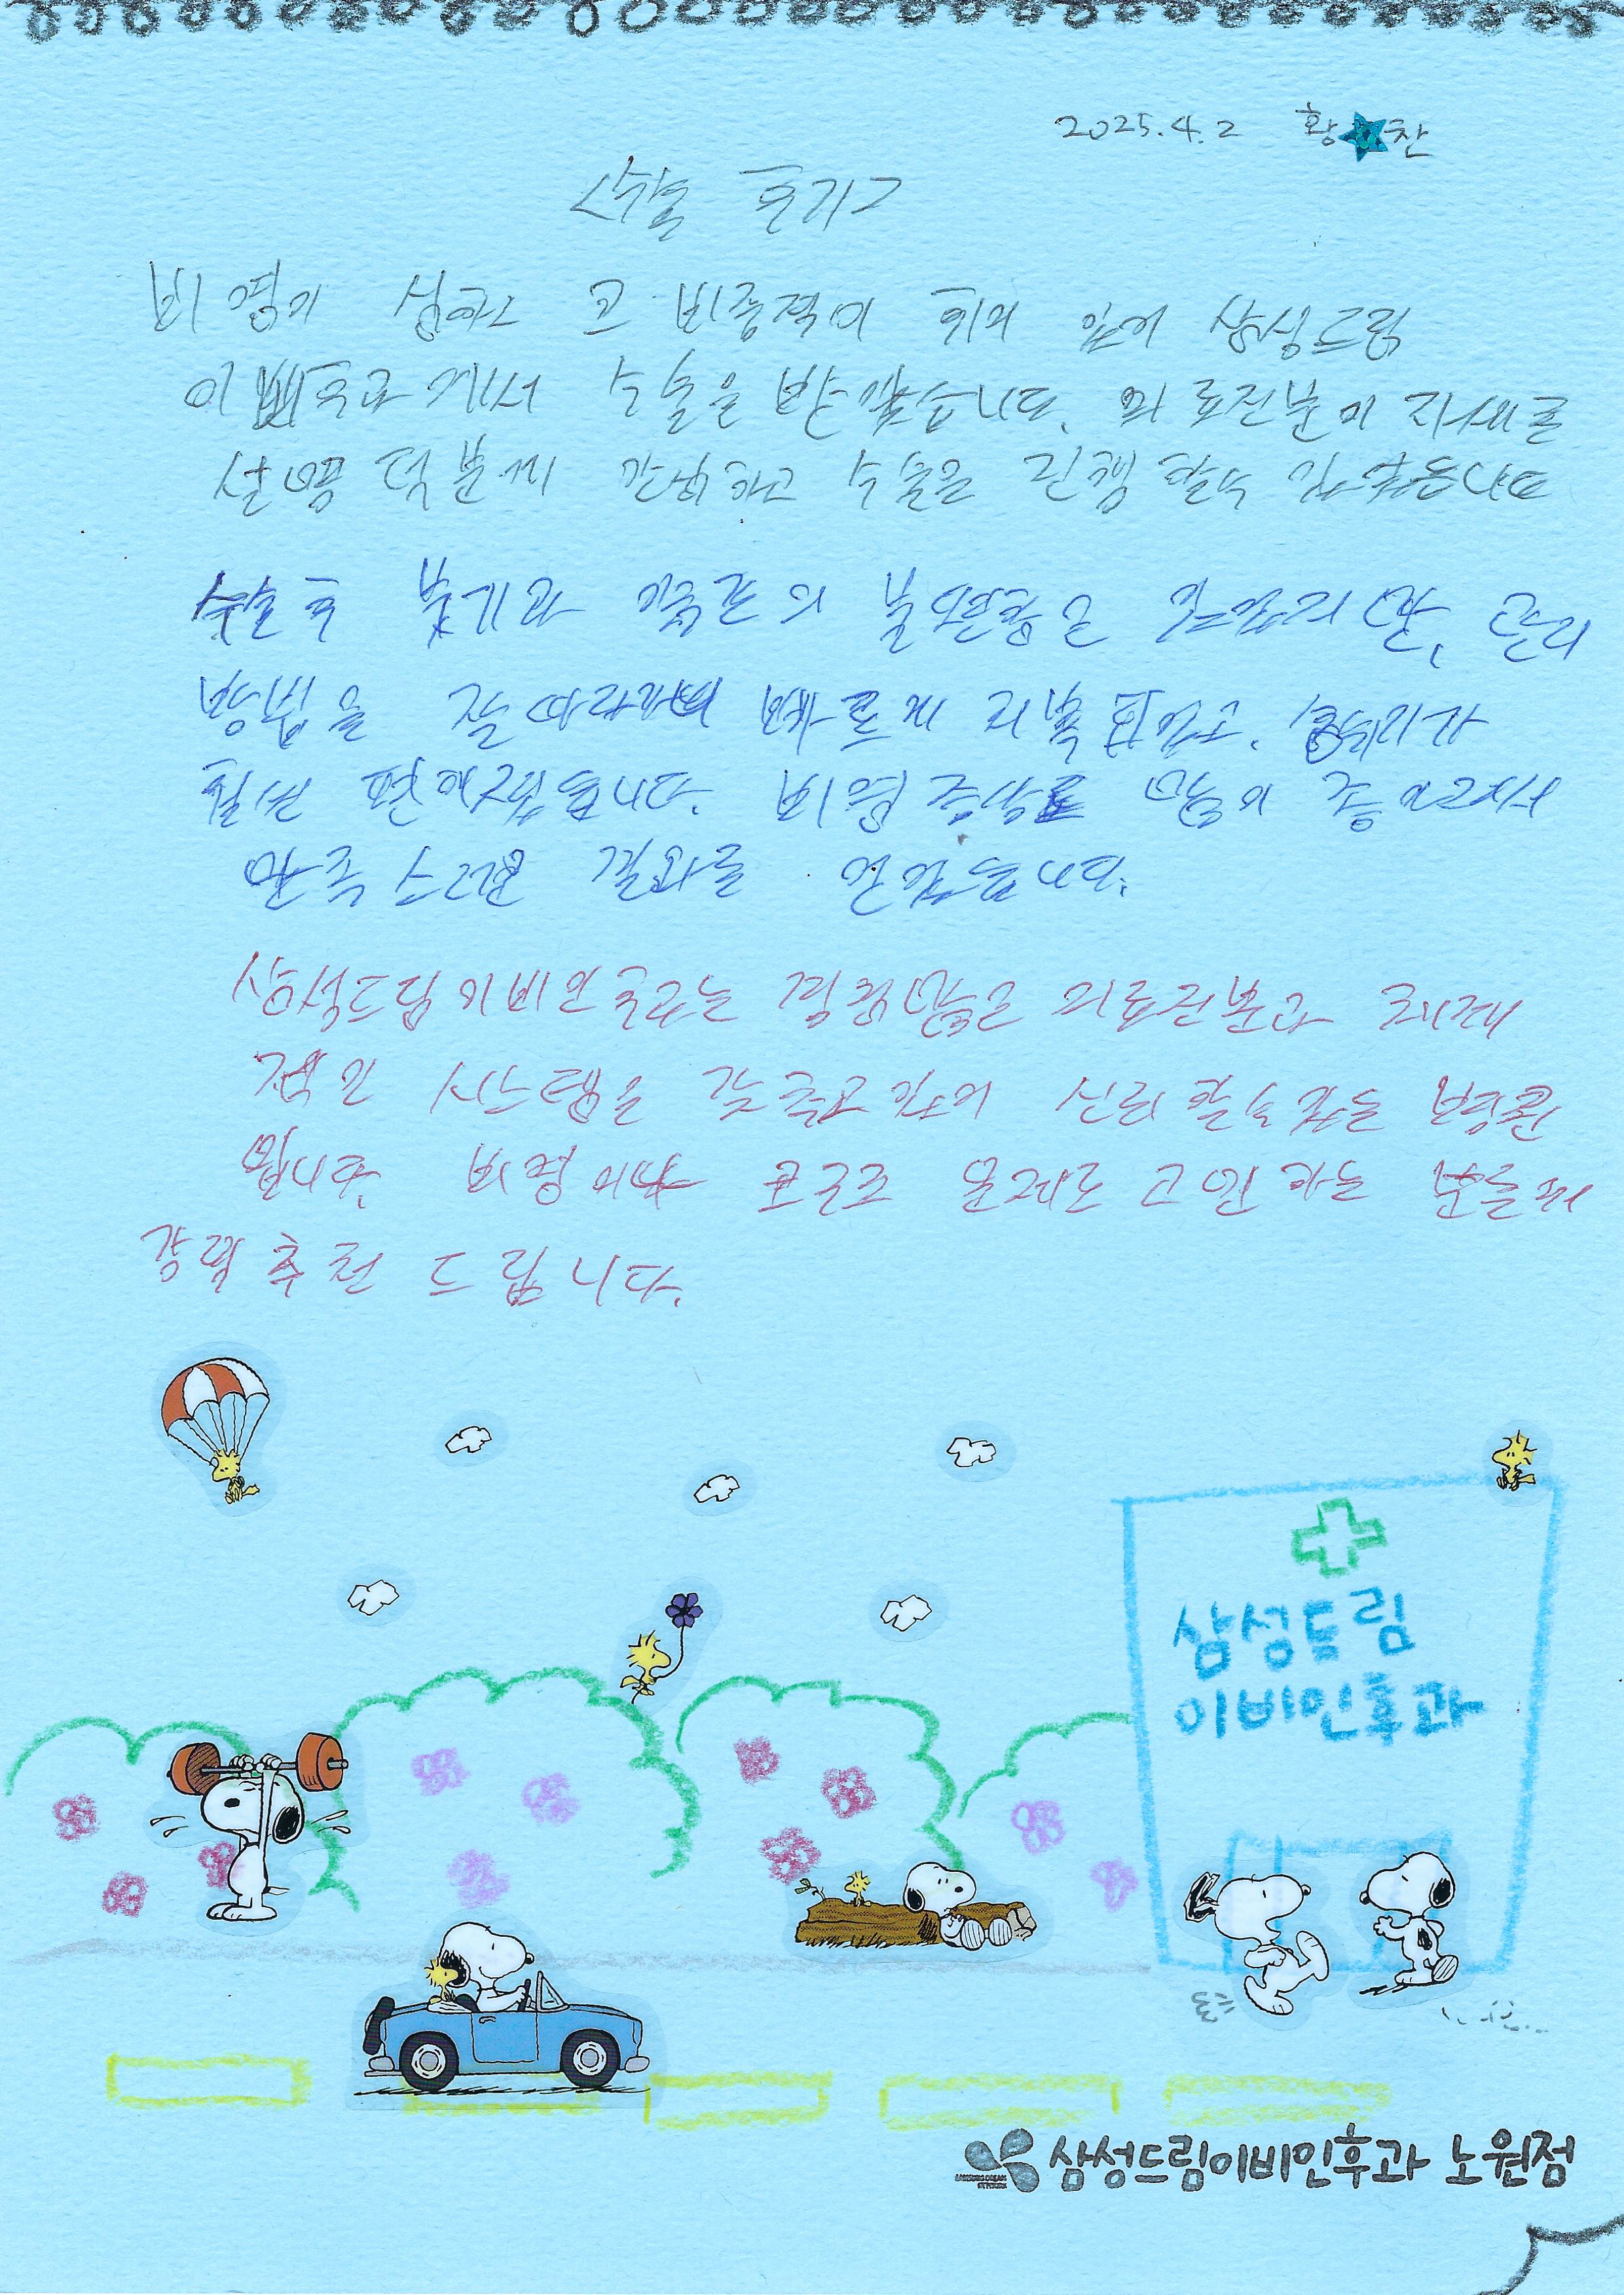 2025.4.2 황★찬
<수술 후기>
비염이 심하고 비중격이 휘어 있어 삼성드림
이비인후과에서 수술을 받았습니다. 의료진분이 자세로
설명 덕분에 안심하고 수술을 진행 할수 있었습니다
수술 후 붓기과 기류의 불편함은 있었지만, 관리
방법을 잘 따라가며 빠르게 회복되었고, 숨쉬기가
훨씬 편해졌습니다. 비염 증상도 많이 줄어들어서
만족스러운 결과를 얻었습니다.
삼성드림이비인후과는 경험많은 의료진분과 체계
적인 시스템을 갖추고 있어 신뢰할수있는 병원
입니다. 비염이나 코골로 문제로 고민하는 분들께
강력 추천 드립니다.
삼성드림
이비인후과
삼성드림이비인후과 노원점